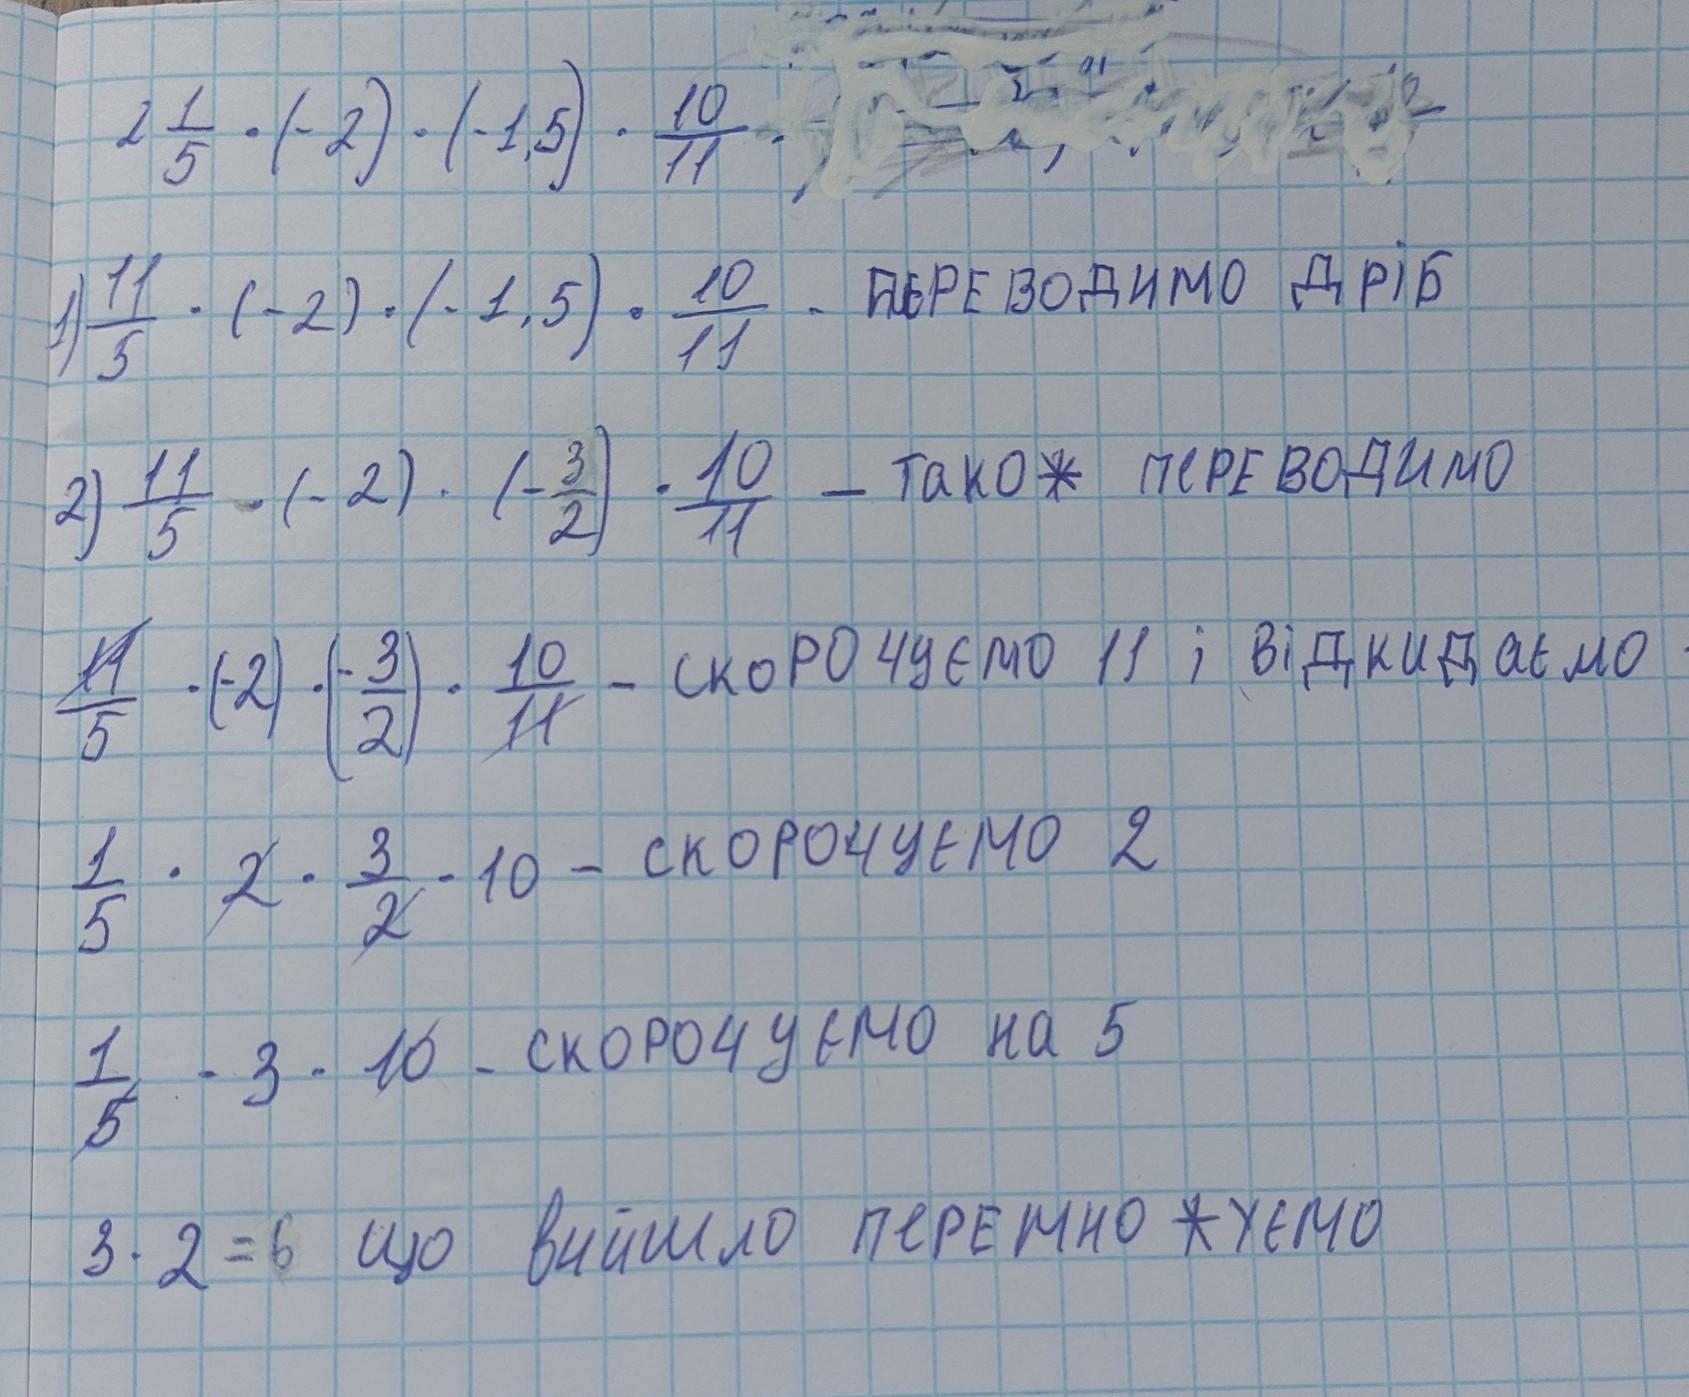 2 1/5 · (-2) · (-1,5) · 10/11
1) 11/5 · (-2) · (-1,5) · 10/11 - ПЕРЕВОДИМО ДРІБ
2) 11/5 · (-2) · (-3/2) · 10/11 – ТАКОЖ ПЕРЕВОДИМО
11/5 · (-2) · (-3/2) · 10/11 – СКОРОЧУЄМО 11 і ВіДКИДАЄМО -
1/5 · 2 · 3/2 · 10 – СКОРОЧУЄМО 2
1/5 · 3 · 10 - СКОРОЧУЄМО НА 5
3 · 2 = 6 ЩО ВИЙШЛО ПЕРЕМНОЖУЄМО